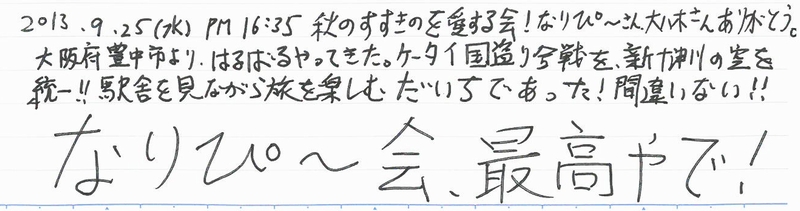 2013.9.25(水) PM 16:35 秋のすすきのを愛する会!なりぴ〜さん、大八木さんありがとう。
大阪府豊中市より、はるばるやってきた。ケータイ国盗り合戦を、新十津川の空を
統一!!駅舎を見ながら旅を楽しむだいちであった!間違いない!!
なりぴ〜会、最高やで!